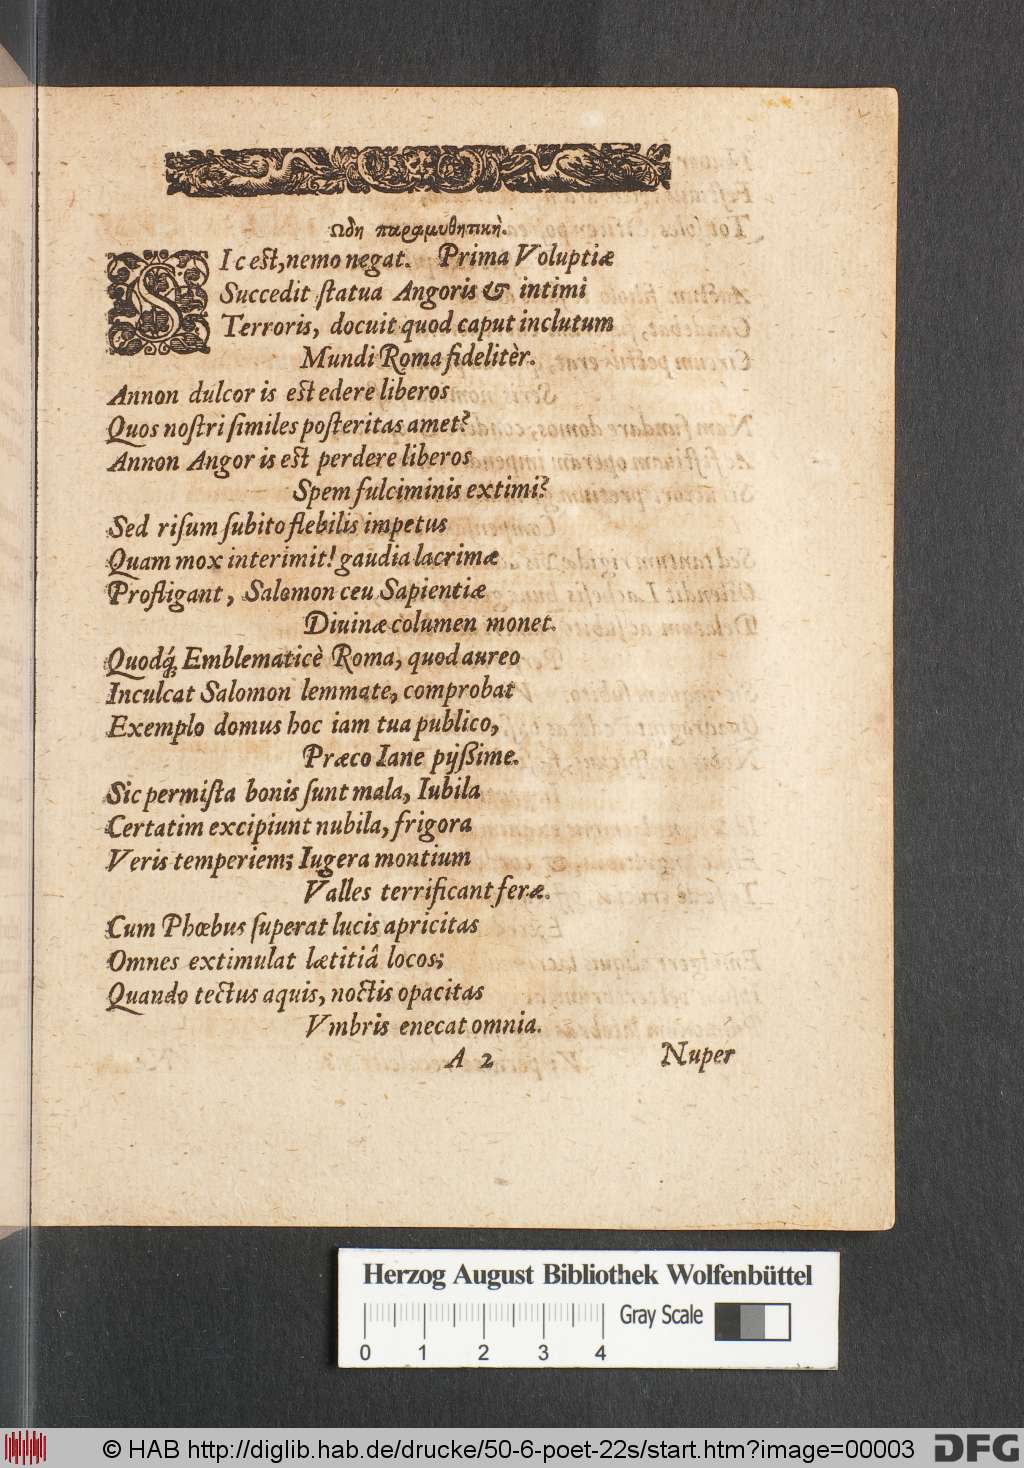 Ωδη παραμυθητικὴ.
SIc est, nemo negat. Prima Voluptiæ
Succedit ſtatua Angoris & intimi
Terroris, docuit quod caput inclutum
Mundi Roma fidelitèr.
Annon dulcor is est edere liberos
Quos noſtri ſimiles poſteritas amet?
Annon Angor is est perdere liberos
Spem fulciminis extimi?
Sed riſum ſubito flebilis impetus
Quam mox interimit! gaudia lacrimæ
Profligant, Salomon ceu Sapientiæ
Diuinæ columen monet.
Quodq́; Emblematicè Roma, quod aureo
Inculcat Salomon lemmate, comprobat
Exemplo domus hoc iam tua publico,
Præco Iane pijßime.
Sic permiſta bonis ſunt mala, Iubila
Certatim excipiunt nubila, frigora
Veris temperiem; Iugera montium
Valles terrificant feræ.
Cum Phœbus ſuperat lucis apricitas
Omnes extimulat lætitiâ locos;
Quando tectus aquis, noctis opacitas
Vmbris enecat omnia.
A 2 Nuper
Herzog August Bibliothek Wolfenbüttel
Gray Scale
0 1 2 3 4
© HAB http://diglib.hab.de/drucke/50-6-poet-22s/start.htm?image=00003
DFG